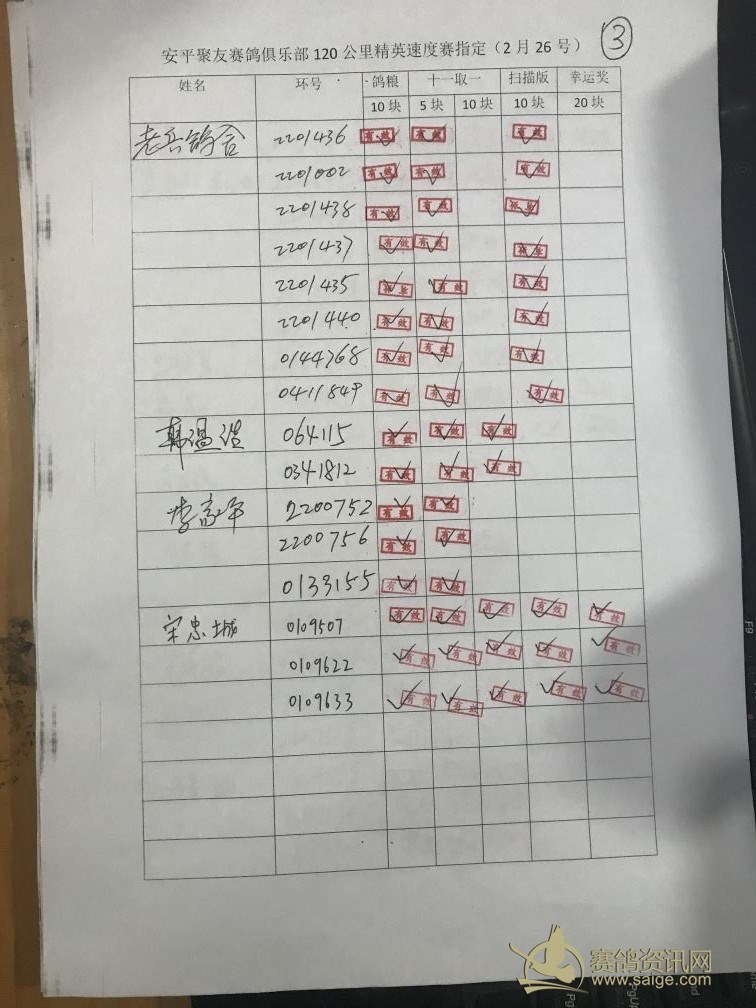 安平聚友赛鸽俱乐部 120 公里精英速度赛指定（2 月 26 号） ③
姓名 环号 鸽粮 十一取一 扫描版 幸运奖
10 块 5 块 10 块 10 块 20 块
老兵鸽舍 2201436 有效 有效 有效
2201002 有效 有效 有效
2201438 有效 有效 有效
2201437 有效 有效 有效
2201435 有效 有效 有效
2201440 有效 有效 有效
0144768 有效 有效 有效
0411849 有效 有效 有效
韩 064115 有效 有效 有效
0341812 有效 有效 有效
李家军 2200752 有效 有效
2200756 有效 有效
0133155 有效 有效
宋忠城 0109507 有效 有效 有效 有效 有效
0109622 有效 有效 有效 有效 有效
0109633 有效 有效 有效 有效 有效
F9
赛鸽资讯网
www.saige.com